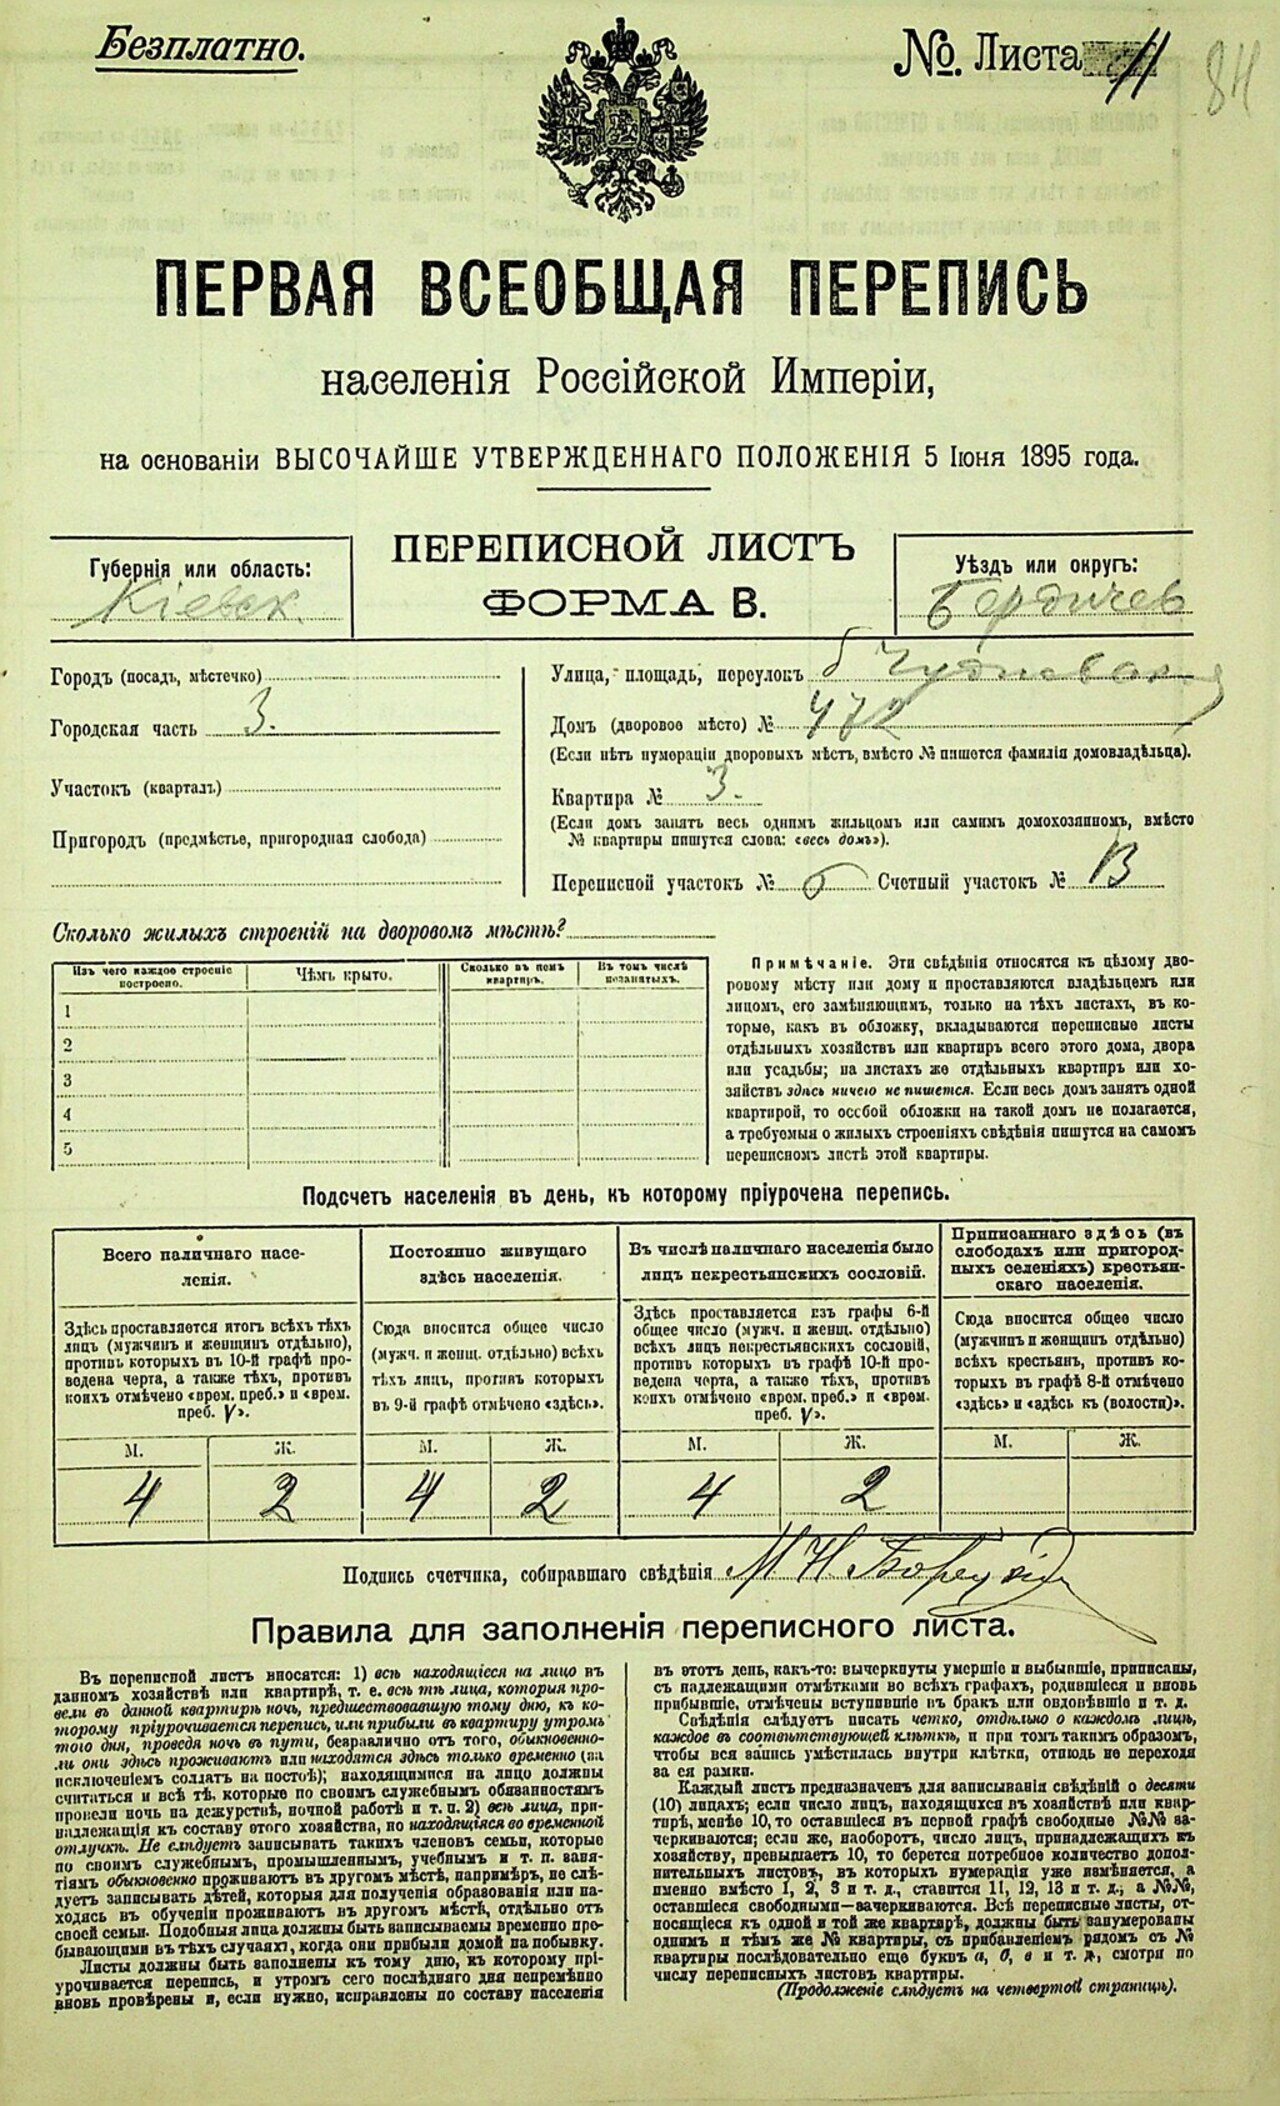 Безплатно.
№. Листа 11
84
ПЕРВАЯ ВСЕОБЩАЯ ПЕРЕПИСЬ
населенія Россійской Имперіи,
на основаніи ВЫСОЧАЙШЕ УТВЕРЖДЕННАГО ПОЛОЖЕНІЯ 5 Іюня 1895 года.
ПЕРЕПИСНОЙ ЛИСТЪ
ФОРМА В.
Губернія или область:
Кіевск.
Уѣздъ или округъ:
Бердичев
Городъ (посадъ, мѣстечко)
Городская часть 3.
Участокъ (кварталъ)
Пригородъ (предмѣстье, пригородная слобода)
Улица, площадь, переулокъ б Чудновская
Домъ (дворовое мѣсто) № 472
(Если нѣтъ нумераціи дворовыхъ мѣстъ, вмѣсто № пишется фамилія домовладѣльца).
Квартира № 3.
(Если домъ занятъ весь однимъ жильцомъ или самимъ домохозяиномъ, вмѣсто
№ квартиры пишутся слова: «весь домъ»).
Переписной участокъ № 6 Счетный участокъ № 13
Сколько жилыхъ строеній на дворовомъ мѣстѣ?
Изъ чего каждое строеніе
построено.
Чѣмъ крыто.
Сколько въ немъ
квартиръ.
Въ томъ числѣ
незанятыхъ.
1
2
3
4
5
Примѣчаніе. Эти свѣдѣнія относятся къ цѣлому дво-
ровому мѣсту или дому и проставляются владѣльцемъ или
лицомъ, его замѣняющимъ, только на тѣхъ листахъ, въ ко-
торые, какъ въ обложку, вкладываются переписные листы
отдѣльныхъ хозяйствъ или квартиръ всего этого дома, двора
или усадьбы; на листахъ же отдѣльныхъ квартиръ или хо-
зяйствъ здѣсь ничего не пишется. Если весь домъ занятъ одной
квартирой, то особой обложки на такой домъ не полагается,
а требуемыя о жилыхъ строеніяхъ свѣдѣнія пишутся на самомъ
переписномъ листѣ этой квартиры.
Подсчетъ населенія въ день, къ которому пріурочена перепись.
Всего наличнаго насе-
ленія.
Здѣсь проставляется итогъ всѣхъ тѣхъ
лицъ (мужчинъ и женщинъ отдѣльно),
противъ которыхъ въ 10-й графѣ про-
ведена черта, а также тѣхъ, противъ
коихъ отмѣчено «врем. преб.» и «врем.
преб. V».
М. Ж.
4 2
Постоянно живущаго
здѣсь населенія.
Сюда вносится общее число
(мужч. и женщ. отдѣльно) всѣхъ
тѣхъ лицъ, противъ которыхъ
въ 9-й графѣ отмѣчено «здѣсь».
М. Ж.
4 2
Въ числѣ наличнаго населенія было
лицъ некрестьянскихъ сословій.
Здѣсь проставляется изъ графы 6-й
общее число (мужч. и женщ. отдѣльно)
всѣхъ лицъ некрестьянскихъ сословій,
противъ которыхъ въ графѣ 10-й про-
ведена черта, а также тѣхъ, противъ
коихъ отмѣчено «врем. преб.» и «врем.
преб. V».
М. Ж.
4 2
Приписаннаго здѣсь (въ
слободахъ или пригород-
ныхъ селеніяхъ) крестьян-
скаго населенія.
Сюда вносится общее число
(мужчинъ и женщинъ отдѣльно)
всѣхъ крестьянъ, противъ ко-
торыхъ въ графѣ 8-й отмѣчено
«здѣсь» и «здѣсь къ (волости)».
М. Ж.
Подпись счетчика, собиравшаго свѣдѣнія М Н Борецкій
Правила для заполненія переписного листа.
Въ переписной листъ вносятся: 1) всѣ находящіеся на лицо въ
данномъ хозяйствѣ или квартирѣ, т. е. всѣ тѣ лица, которыя про-
вели въ данной квартирѣ ночь, предшествовавшую тому дню, къ ко-
торому пріурочивается перепись, или прибыли въ квартиру утромъ
того дня, проведя ночь въ пути, безразлично отъ того, обыкновенно-
ли они здѣсь проживаютъ или находятся здѣсь только временно (за
исключеніемъ солдатъ на постоѣ); находящимися на лицо должны
считаться и всѣ тѣ, которые по своимъ служебнымъ обязанностямъ
провели ночь на дежурствѣ, ночной работѣ и т. п. 2) всѣ лица, при-
надлежащія къ составу этого хозяйства, но находящіяся во временной
отлучкѣ. Не слѣдуетъ записывать такихъ членовъ семьи, которые
по своимъ служебнымъ, промышленнымъ, учебнымъ и т. п. заня-
тіямъ обыкновенно проживаютъ въ другомъ мѣстѣ, напримѣръ, не слѣ-
дуетъ записывать дѣтей, которыя для полученія образованія или на-
ходясь въ обученіи проживаютъ въ другомъ мѣстѣ, отдѣльно отъ
своей семьи. Подобныя лица должны быть записываемы временно пре-
бывающими въ тѣхъ случаяхъ, когда они прибыли домой на побывку.
Листы должны быть заполнены къ тому дню, къ которому прі-
урочивается перепись, и утромъ сего послѣдняго дня непремѣнно
вновь провѣрены и, если нужно, исправлены по составу населенія
въ этотъ день, какъ-то: вычеркнуты умершіе и выбывшіе, приписаны,
съ надлежащими отмѣтками во всѣхъ графахъ, родившіеся и вновь
прибывшіе, отмѣчены вступившіе въ бракъ или овдовѣвшіе и т. д.
Свѣдѣнія слѣдуетъ писать четко, отдѣльно о каждомъ лицѣ,
каждое въ соотвѣтствующей клѣткѣ, и при томъ такимъ образомъ,
чтобы вся запись умѣстилась внутри клѣтки, отнюдь не переходя
за ея рамки.
Каждый листъ предназначенъ для записыванія свѣдѣній о десяти
(10) лицахъ; если число лицъ, находящихся въ хозяйствѣ или квар-
тирѣ, менѣе 10, то оставшіеся въ первой графѣ свободные №№ за-
черкиваются; если же, наоборотъ, число лицъ, принадлежащихъ къ
хозяйству, превышаетъ 10, то берется потребное количество допол-
нительныхъ листовъ, въ которыхъ нумерація уже измѣняется, а
именно вмѣсто 1, 2, 3 и т. д., ставится 11, 12, 13 и т. д., а №№,
оставшіеся свободными—зачеркиваются. Всѣ переписные листы, от-
носящіеся къ одной и той же квартирѣ, должны быть занумерованы
однимъ и тѣмъ же № квартиры, съ прибавленіемъ рядомъ съ №
квартиры послѣдовательно еще буквъ а, б, в и т. д., смотря по
числу переписныхъ листовъ квартиры.
(Продолженіе слѣдуетъ на четвертой страницѣ).